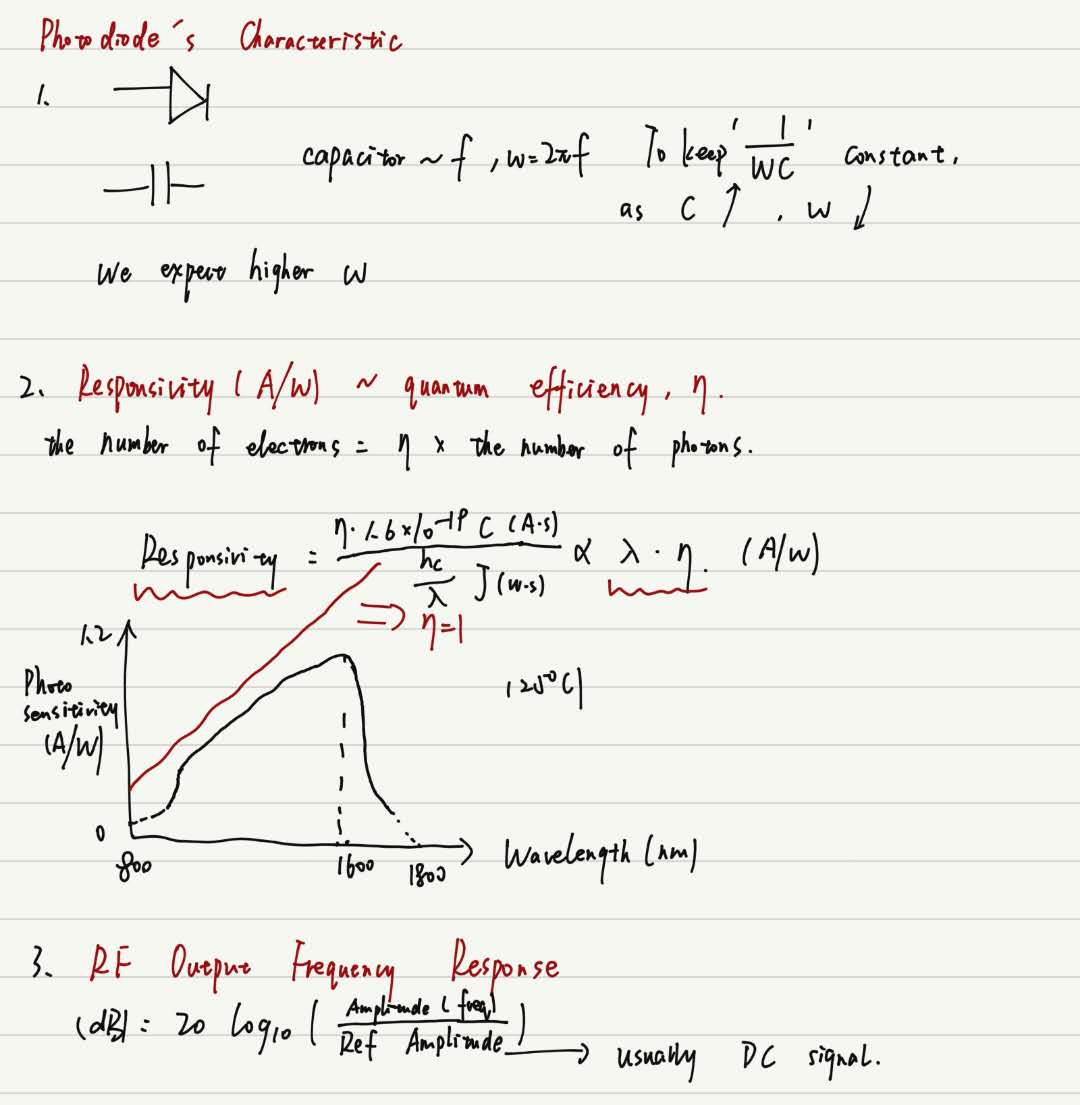 Photodiode's Characteristic
1.
capacitor ~ f , w = 2πf To keep ' 1/WC ' constant,
as C ↑ , w ↓
We expect higher w
2. Responsivity (A/W) ~ quantum efficiency, η.
the number of electrons = η × the number of photons.
Responsivity = η · 1.6 × 10^-19 C (A·s) / hc/λ J (w·s) ∝ λ · η. (A/W)
⇒ η=1
1.2
Photo
sensitivity
(A/W)
(25°C)
0
800 1600 1800
Wavelength (nm)
3. RF Output Frequency Response
(dB) = 20 log10 ( Amplitude (freq) / Ref Amplitude ) → usually DC signal.